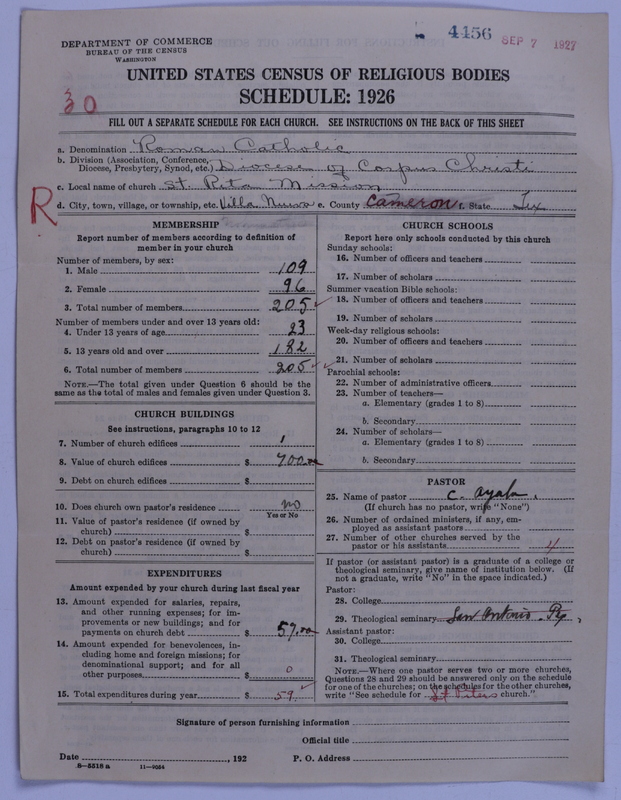 4456 SEP 7 1927
DEPARTMENT OF COMMERCE
BUREAU OF THE CENSUS
WASHINGTON
UNITED STATES CENSUS OF RELIGIOUS BODIES
SCHEDULE: 1926
30
FILL OUT A SEPARATE SCHEDULE FOR EACH CHURCH. SEE INSTRUCTIONS ON THE BACK OF THIS SHEET
a. Denomination Roman Catholic
b. Division (Association, Conference,
Diocese, Presbytery, Synod, etc.) Diocese of Corpus Christi
c. Local name of church St. Rita Mission
R
d. City, town, village, or township, etc. Villa Nueva e. County Cameron f. State Tex
MEMBERSHIP
Report number of members according to definition of
member in your church
Number of members, by sex:
1. Male 109
2. Female 96
3. Total number of members 205
Number of members under and over 13 years old:
4. Under 13 years of age 23
5. 13 years old and over 182
6. Total number of members 205
NOTE.—The total given under Question 6 should be
same as the total of males and females given under Question 3.
CHURCH BUILDINGS
See instructions, paragraphs 10 to 12
7. Number of church edifices 1
8. Value of church edifices $ 700.00
9. Debt on church edifices $
10. Does church own pastor's residence no
Yes or No
11. Value of pastor's residence (if owned by
church) $
12. Debt on pastor's residence (if owned by
church) $
EXPENDITURES
Amount expended by your church during last fiscal year
13. Amount expended for salaries, repairs,
and other running expenses; for im-
provements or new buildings; and for
payments on church debt $ 57.00
14. Amount expended for benevolences, in-
cluding home and foreign missions; for
denominational support; and for all
other purposes $ 0
15. Total expenditures during year $ 59
CHURCH SCHOOLS
Report here only schools conducted by this church
Sunday schools:
16. Number of officers and teachers
17. Number of scholars
Summer vacation Bible schools:
18. Number of officers and teachers
19. Number of scholars
Week-day religious schools:
20. Number of officers and teachers
21. Number of scholars
Parochial schools:
22. Number of administrative officers
23. Number of teachers—
a. Elementary (grades 1 to 8)
b. Secondary
24. Number of scholars—
a. Elementary (grades 1 to 8)
b. Secondary
PASTOR
25. Name of pastor C. Ayala
(If church has no pastor, write "None")
26. Number of ordained ministers, if any, em-
ployed as assistant pastors
27. Number of other churches served by the
pastor or his assistants 4
If pastor (or assistant pastor) is a graduate of a college or
theological seminary, give name of institution below. (If
not a graduate, write "No" in the space indicated.)
Pastor:
28. College
29. Theological seminary San Antonio
Assistant pastor:
30. College
31. Theological seminary
NOTE.—Where one pastor serves two or more churches,
Questions 28 and 29 should be answered only on the schedule
for one of the churches; on the schedules for the other churches,
write "See schedule for St Peters church."
Signature of person furnishing information
Official title
Date , 192 P. O. Address
8—5518 a 11—9054